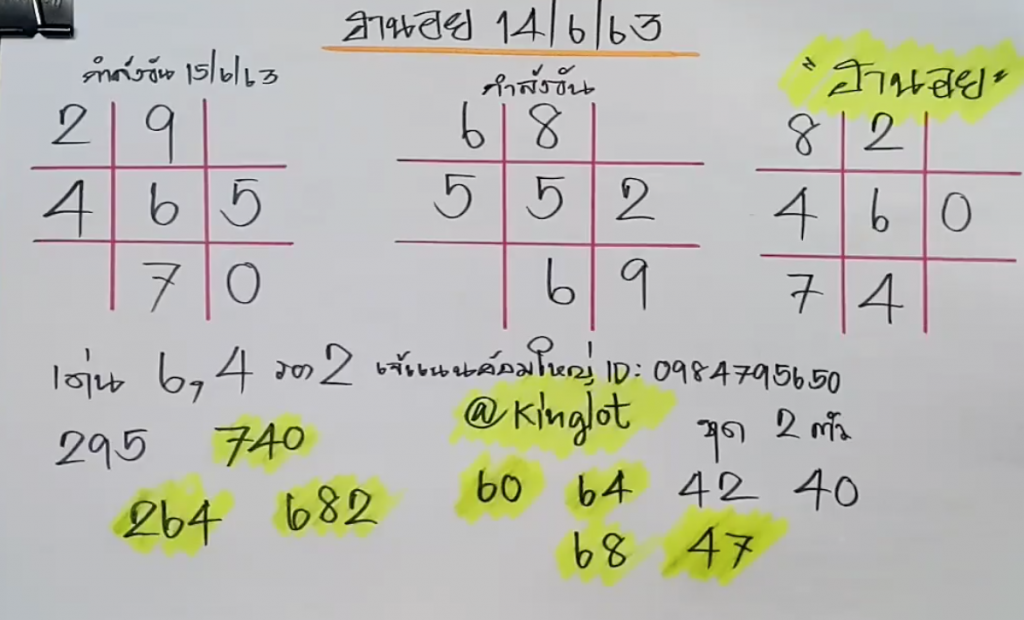 ฮานอย 14/6/63
คำสั่งวัน 15/6/63
2 9
4 6 5
7 0
คำสั่งวัน
6 8
5 5 2
6 9
"ฮานอย"
8 2
4 6 0
7 4
เด่น 6,4 รอง 2
ID: 0984795650
295 740
264 682
@Kinglot
ชุด 2 ตัว
60 64 42 40
68 47